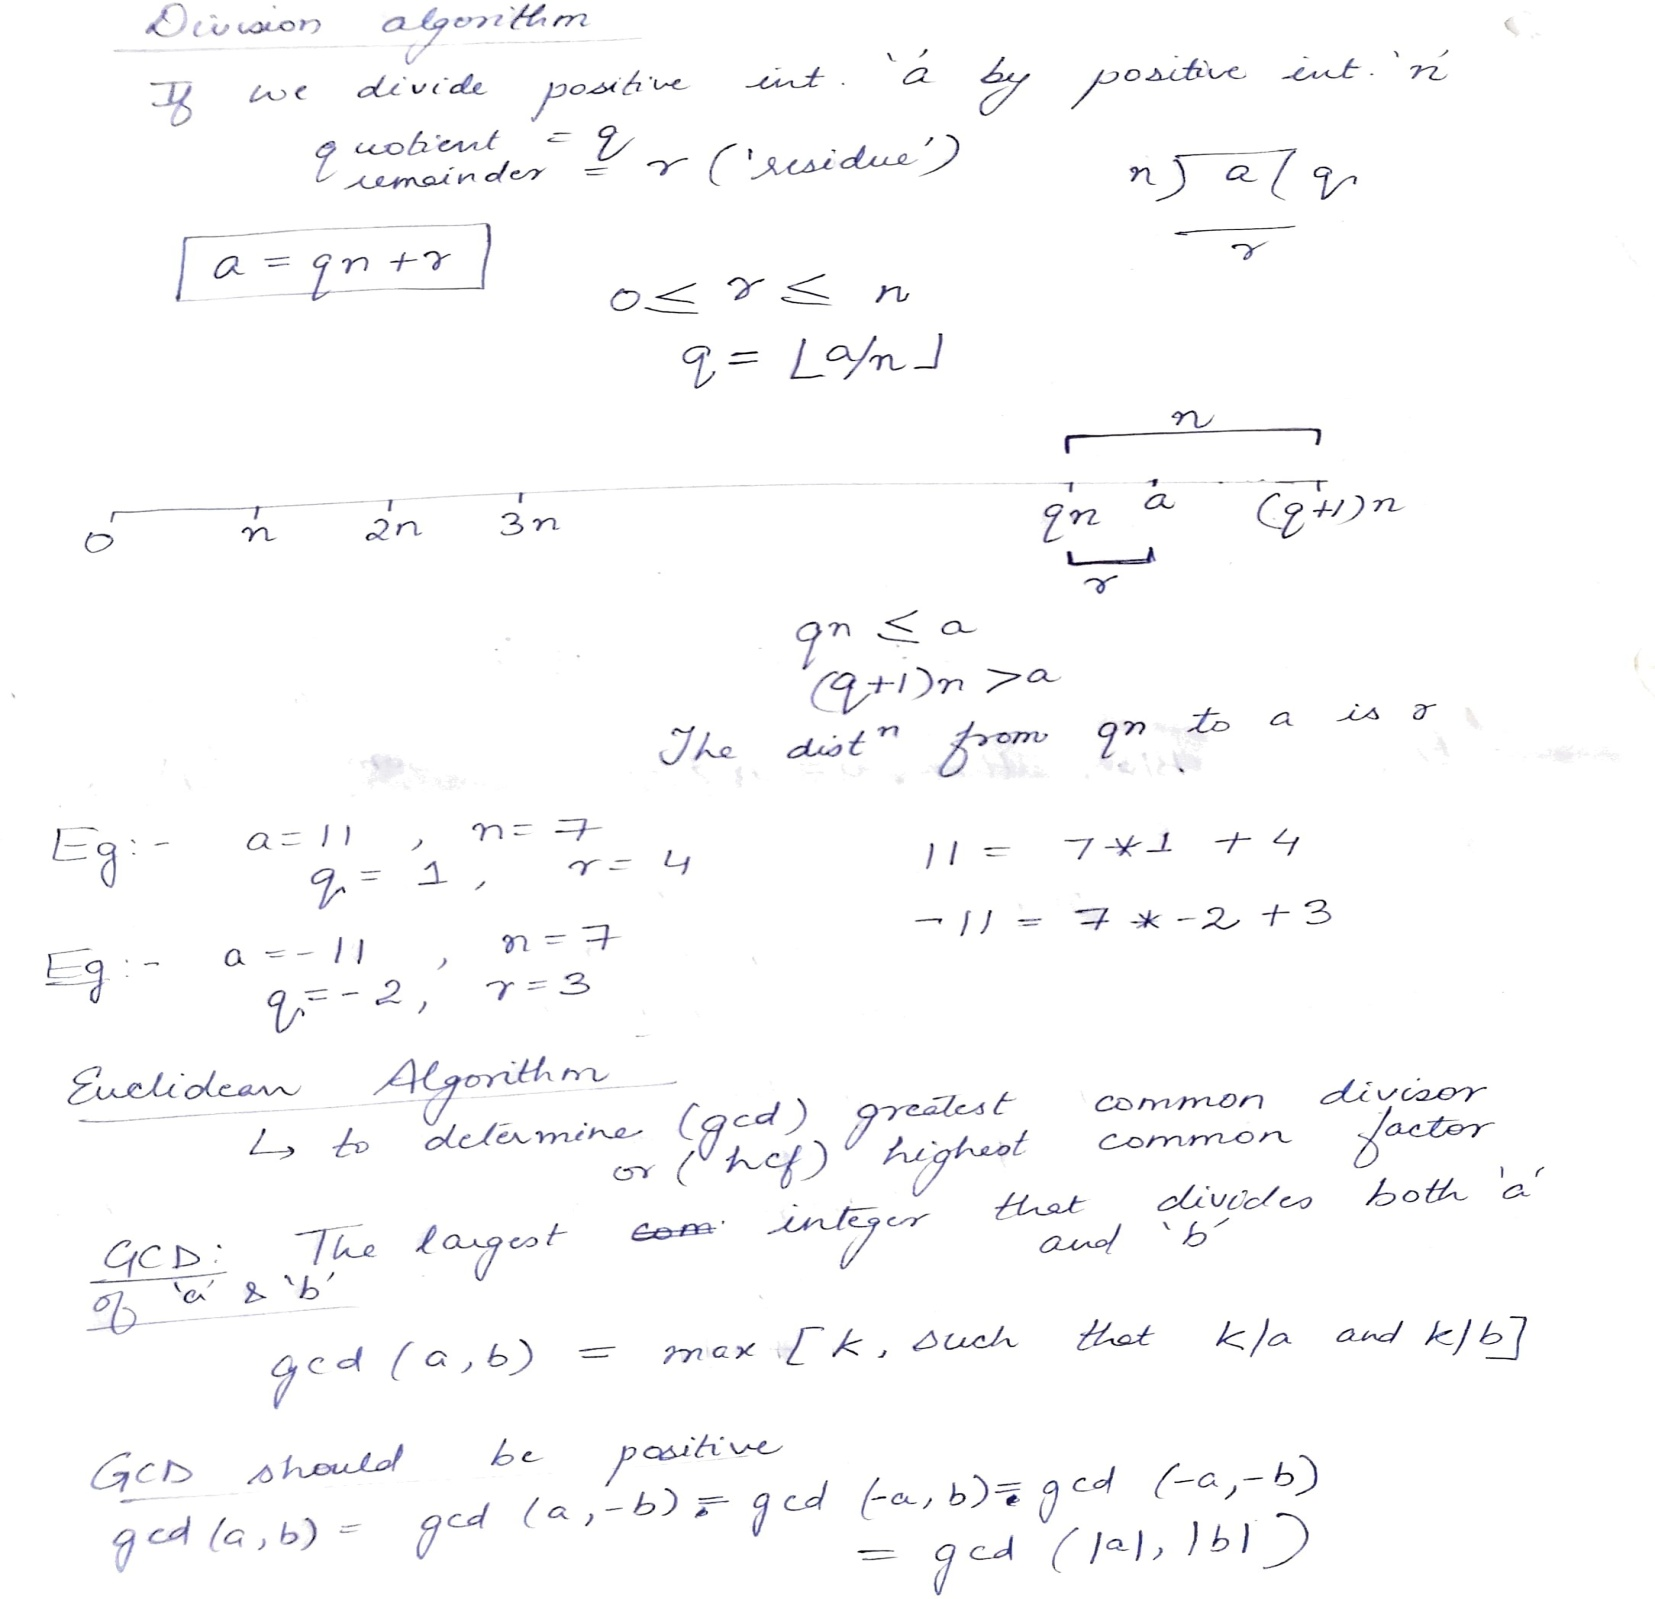 Division algorithm
If we divide positive int. 'a' by positive int. 'n'
quotient = q
remainder = r ('residue')
n) a ( q
r
a = qn + r
0 ≤ r ≤ n
q = ⌊a/n⌋
n
0 n 2n 3n qn a (q+1)n
r
qn ≤ a
(q+1)n > a
The distⁿ from qn to a is r
Eg:- a = 11 , n = 7
q = 1 , r = 4
11 = 7*1 + 4
Eg:- a = -11 , n = 7
q = -2, r = 3
-11 = 7 * -2 + 3
Euclidean Algorithm
↳ to determine (gcd) greatest common divisor
or (hcf) highest common factor
GCD: The largest com integer that divides both 'a'
and 'b'
of 'a' & 'b'
gcd (a,b) = max [k, such that k/a and k/b]
GCD should be positive
gcd (a,b) = gcd (a,-b) = gcd (-a,b) = gcd (-a,-b)
= gcd (|a|, |b|)